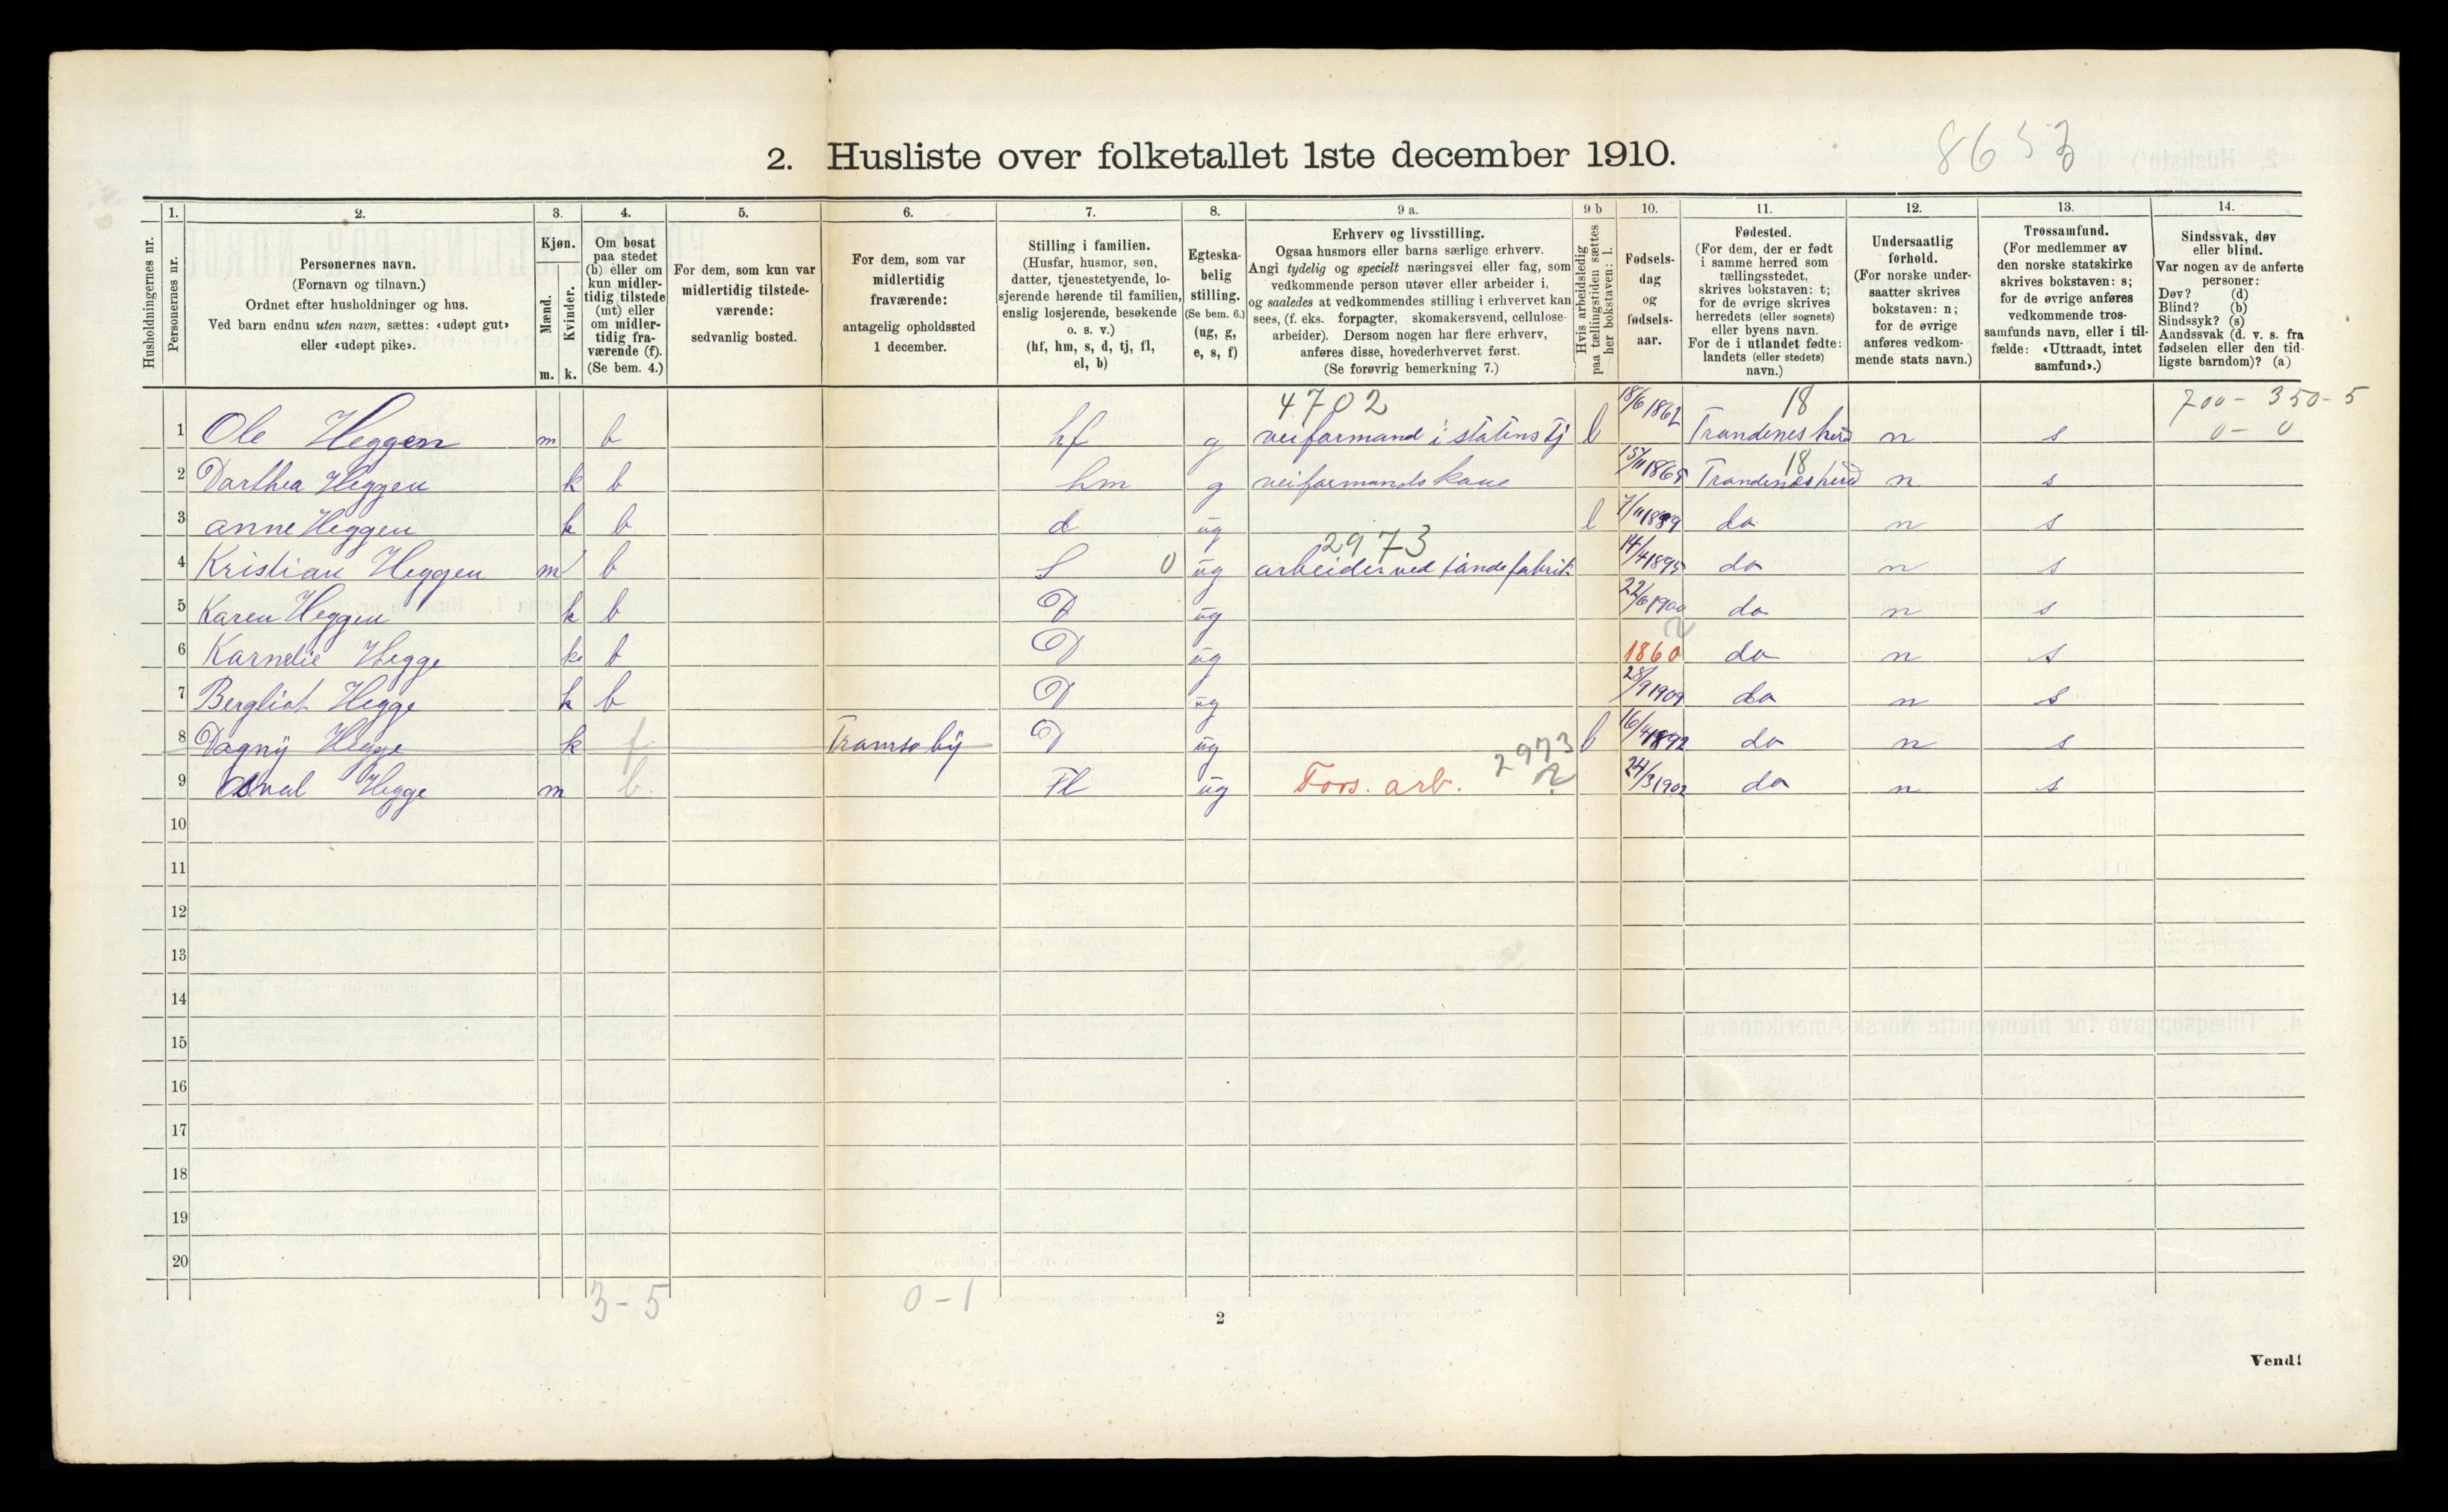 2. Husliste over folketallet 1ste december 1910.
8653
Husholdningernes nr.
1. Personernes nr.
2. Personernes navn.
(Fornavn og tilnavn.)
Ordnet efter husholdninger og hus.
Ved barn endnu uten navn, sættes: «udøpt gut»
eller «udøpt pike».
3. Kjøn.
Mænd. Kvinder.
m. k.
4. Om bosat
paa stedet
(b) eller om
kun midler-
tidig tilstede
(mt) eller
om midler-
tidig fra-
værende (f).
(Se bem. 4.)
5. For dem, som kun var
midlertidig tilstede-
værende:
sedvanlig bosted.
6. For dem, som var
midlertidig
fraværende:
antagelig opholdssted
1 december.
7. Stilling i familien.
(Husfar, husmor, søn,
datter, tjenestetyende, lo-
sjerende hørende til familien,
enslig losjerende, besøkende
o. s. v.)
(hf, hm, s, d, tj, fl,
el, b)
8. Egteska-
belig
stilling.
(Se bem. 6.)
(ug, g,
e, s, f)
9 a. Erhverv og livsstilling.
Ogsaa husmors eller barns særlige erhverv.
Angi tydelig og specielt næringsvei eller fag, som
vedkommende person utøver eller arbeider i,
og saaledes at vedkommendes stilling i erhvervet kan
sees, (f. eks. forpagter, skomakersvend, cellulose-
arbeider). Dersom nogen har flere erhverv,
anføres disse, hovederhvervet først.
(Se forøvrig bemerkning 7.)
9 b Hvis arbeidsledig
paa tællingstiden sættes
her bokstaven: l.:
10. Fødsels-
dag
og
fødsels-
aar.
11. Fødested.
(For dem, der er født
i samme herred som
tællingsstedet,
skrives bokstaven: t;
for de øvrige skrives
herredets (eller sognets)
eller byens navn.
For de i utlandet fødte:
landets (eller stedets)
navn.)
12. Undersaatlig
forhold.
(For norske under-
saatter skrives
bokstaven: n;
for de øvrige
anføres vedkom-
mende stats navn.)
13. Trossamfund.
(For medlemmer av
den norske statskirke
skrives bokstaven: s;
for de øvrige anføres
vedkommende tros-
samfunds navn, eller i til-
fælde: «Uttraadt, intet
samfund».)
14. Sindssvak, døv
eller blind.
Var nogen av de anførte
personer:
Døv? (d)
Blind? (b)
Sindssyk? (s)
Aandssvak (d. v. s. fra
fødselen eller den tid-
ligste barndom)? (a)
4702 18 700 - 350 - 5
1 Ole Heggen m b hf g veiformand i statens tj l 18/6 1862 Trondenes herd n s 0 - 0
18
2 Dorthea Heggen k b hm g veiformands kone 15/11 1865 Trondenes herd n s
3 Anne Heggen k b d ug l 7/11 1889 do n s
2973
4 Kristian Heggen m b S 0 ug arbeider ved tøndefabrik 14/4 1895 do n s
5 Karen Heggen k b D ug 22/6 1900 do n s
6 Karnelie Hegge k b D ug 1860 2 do n s
7 Bergliot Hegge k b D ug 28/9 1909 do n s
8 Dagny Hegge k f Tromsø by D ug l 16/4 1892 do n s
2973
9 Asval Hegge m b. Fl ug Fors. arb. ? 24/3 1902 do n s
10
11
12
13
14
15
16
17
18
19
20
3 - 5 0 - 1
2
Vend!